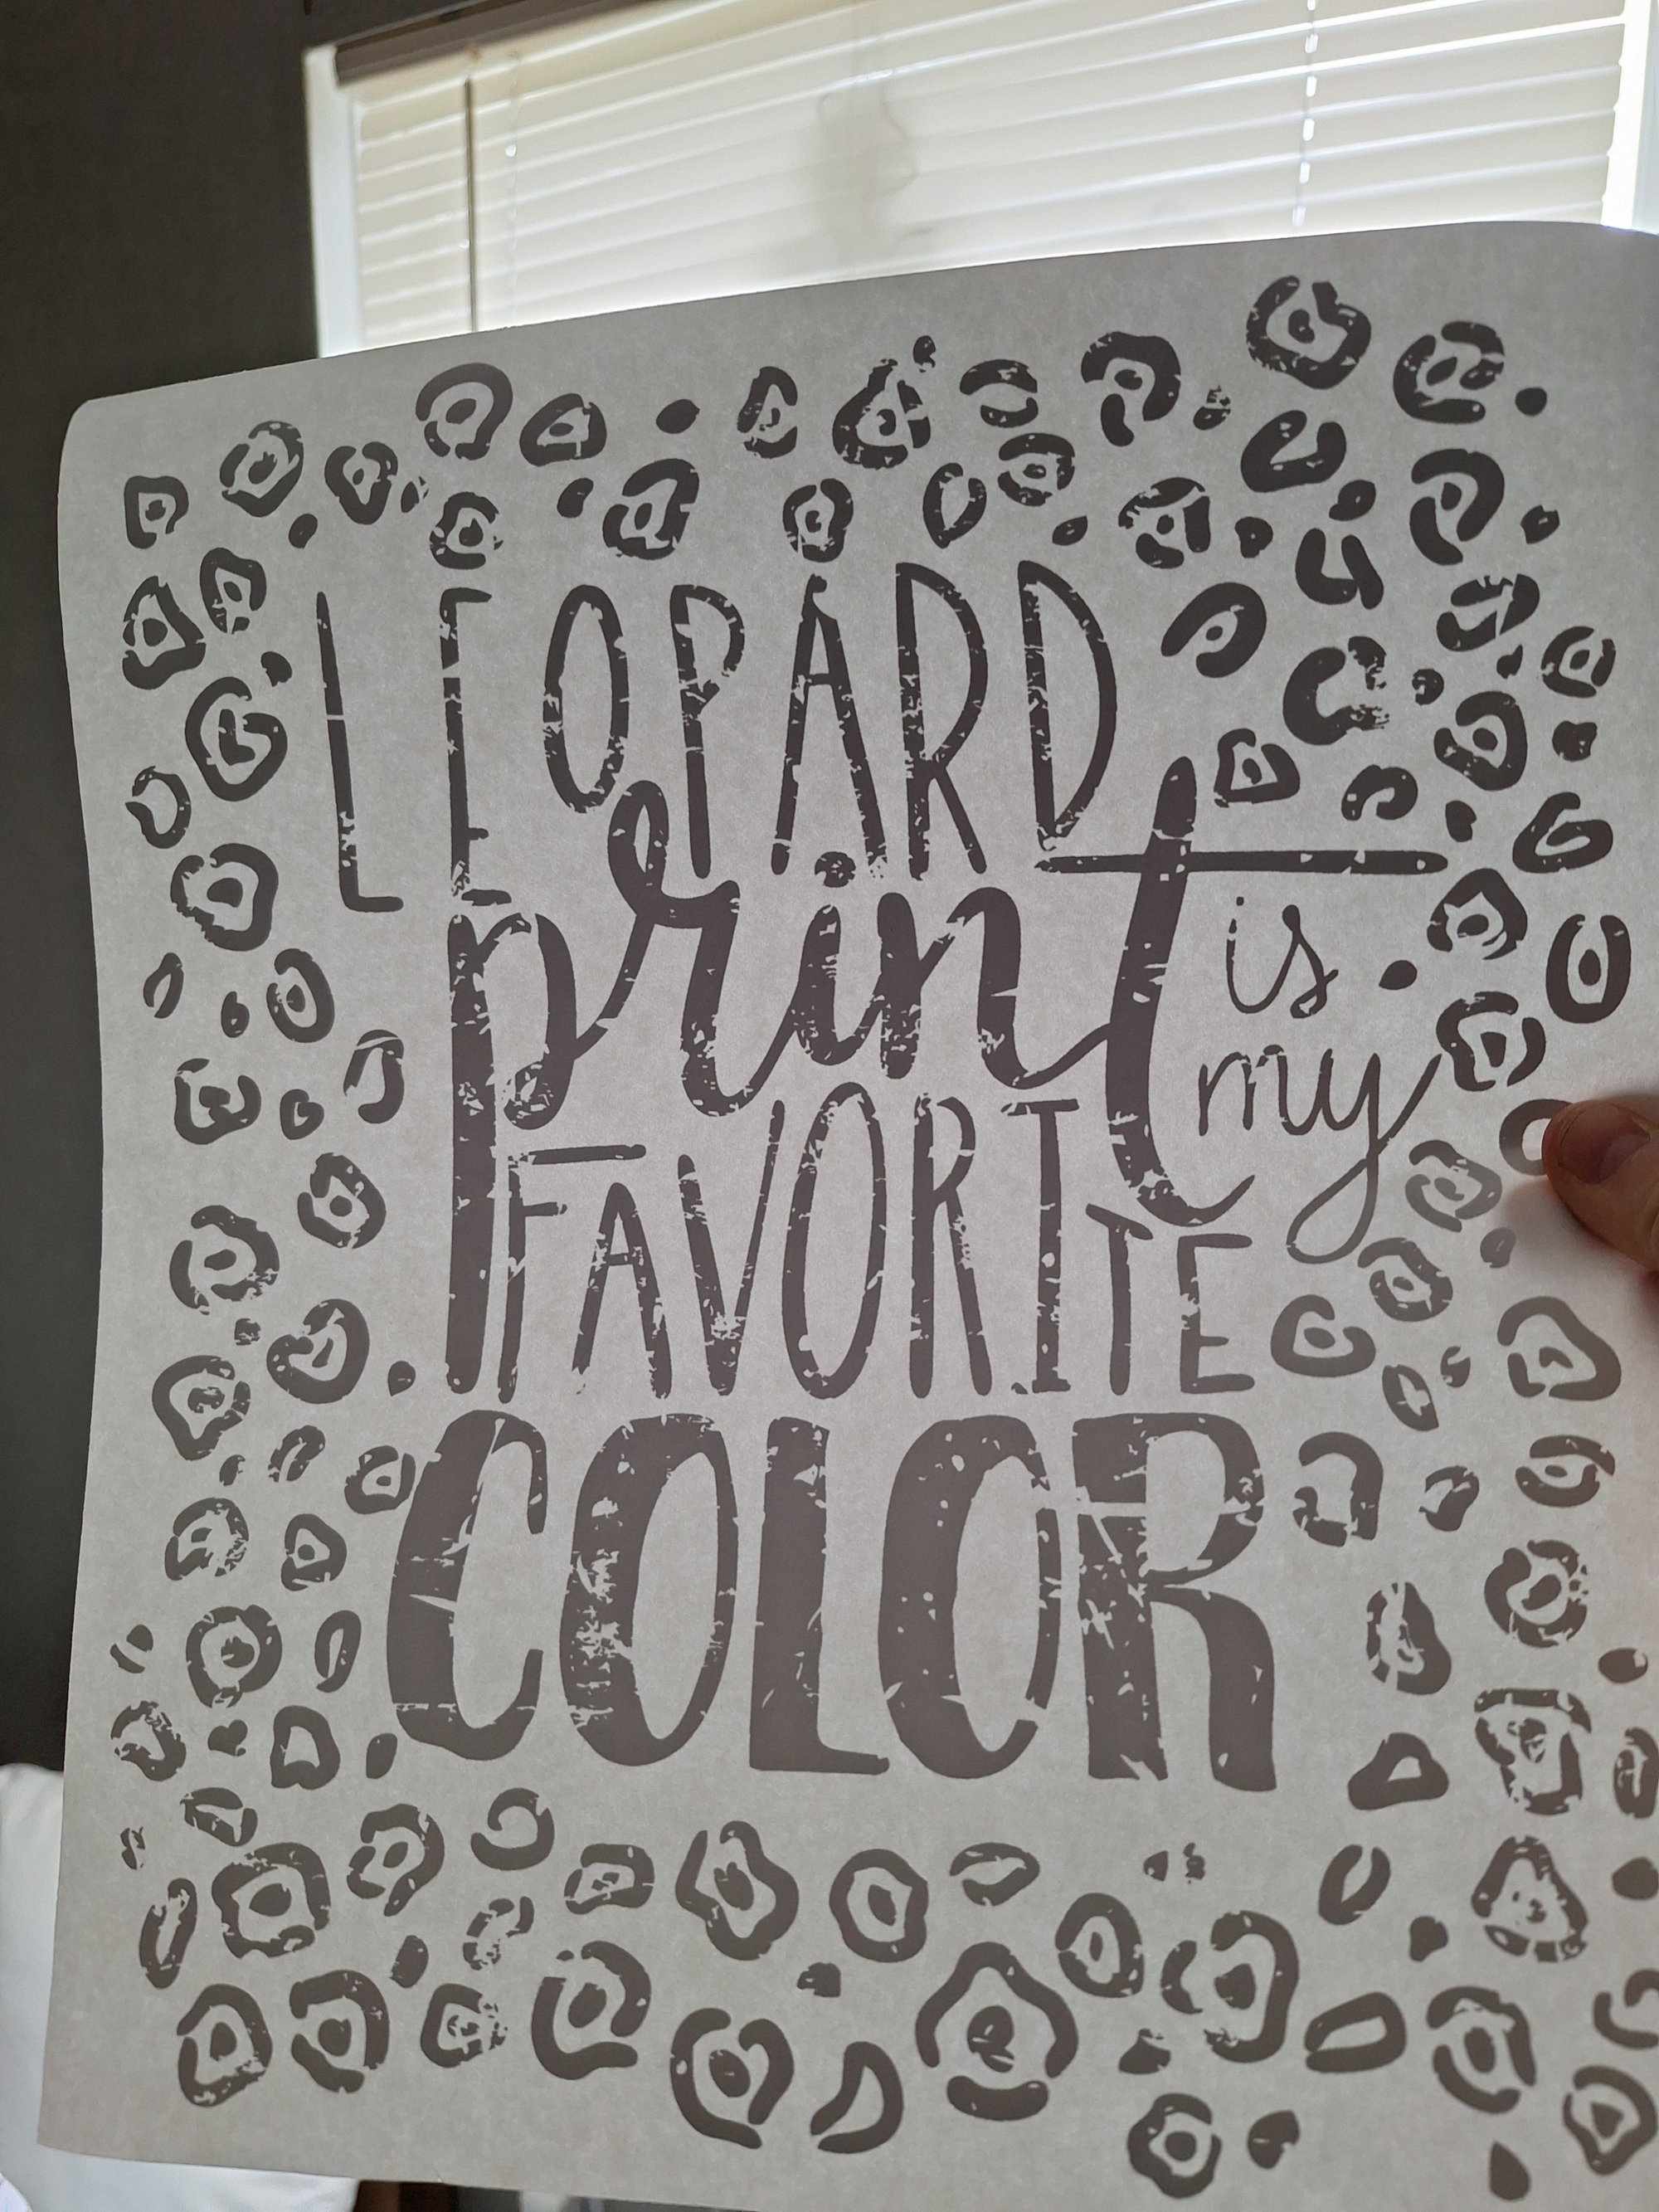 LEOPARD
print is
my
FAVORITE
COLOR